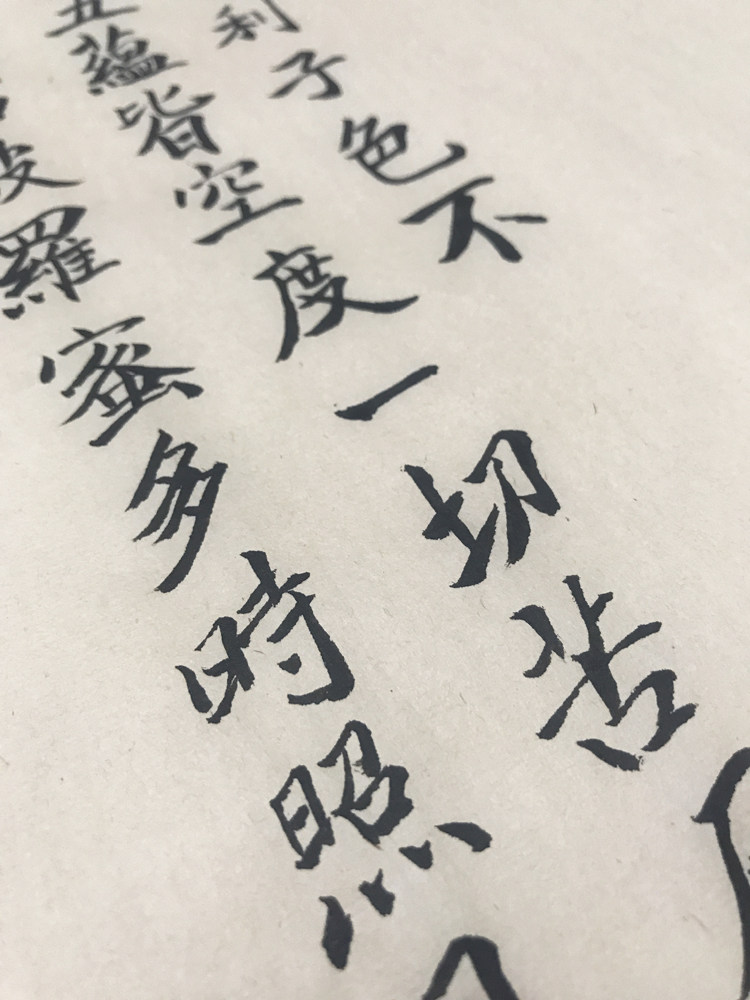 利子色不
五蘊皆空度一切苦
波羅蜜多時照